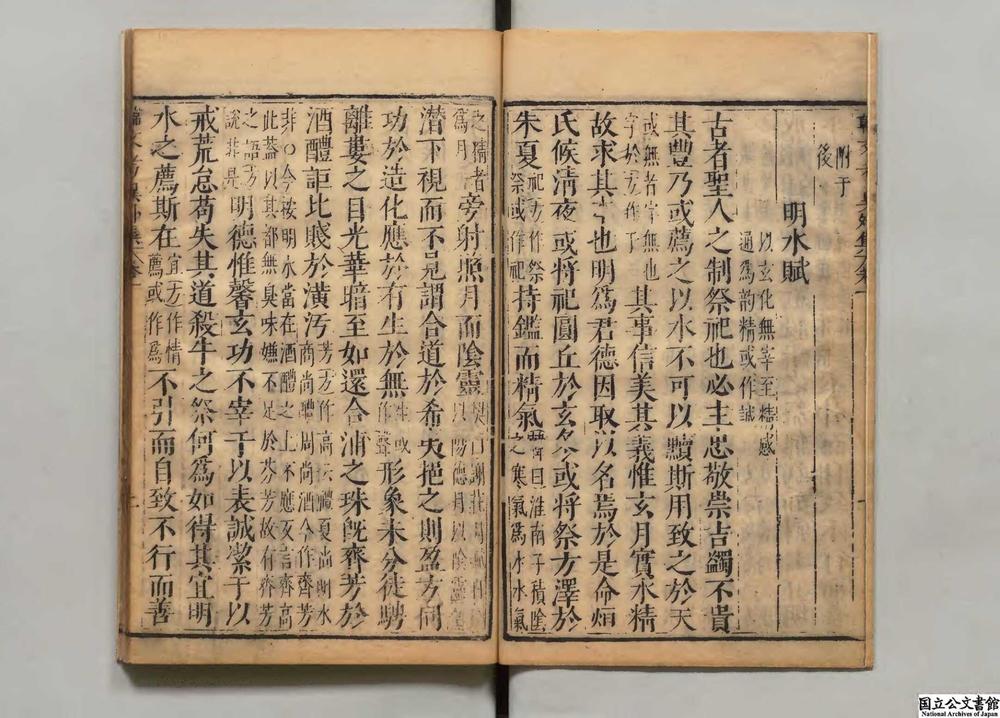 附于
後
明水賦
以玄化無宰至精感
通爲韵精或作誠
古者聖人之制祭祀也必主忠敬崇吉蠲不貴
其豐乃或薦之以水不可以黷斯用致之於天
或無者字無也
字於方作于
其事信美其義惟玄月實水精
故求其本也明爲君德因取以名焉於是命烜
氏候清夜或將祀圓丘於玄冬或將祭方澤於
朱夏
祀方作祭
祭或作祀
持鑑而精氣
曰淮南子積陰
之寒氣爲水水氣
之精者
爲月
旁射照月而陰靈
樊曰謝莊月賦日
以陽德月以陰靈
潜下視而不見謂合道於希夷挹之則盈方同
功於造化應於有生於無
性或
作聲
形象未分徒騁
離婁之目光華暗至如還合浦之珠旣齊芳於
酒醴詎比賤於潢汚
芳方作高云醴夏尚明水
商尚醴周尚酒今作齊芳
非○今按明水當在酒醴之上不應反言齊高
此葢以其都無臭味嫌不足於芬芳故有齊芳
之語方
說非是
明德惟馨玄功不宰于以表誠潔于以
戒荒怠苟失其道殺牛之祭何爲如得其宜明
水之薦斯在
宜方作情
薦或作爲
不引而自致不行而善
国立公文書館
National Archives of Japan